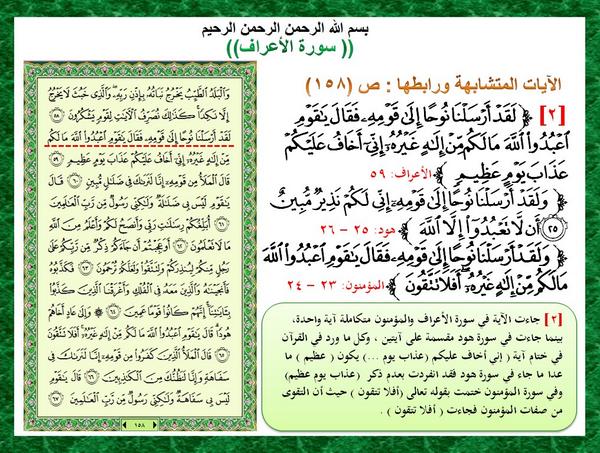 بسم الله الرحمن الرحمن الرحيم
(( سورة الأعراف ))
الآيات المتشابهة ورابطها : ص (١٥٨)
[٢] ﴿ لَقَدْ أَرْسَلْنَا نُوحًا إِلَىٰ قَوْمِهِۦ فَقَالَ يَٰقَوْمِ
ٱعْبُدُوا۟ ٱللَّهَ مَا لَكُم مِّنْ إِلَٰهٍ غَيْرُهُۥٓ إِنِّىٓ أَخَافُ عَلَيْكُمْ
عَذَابَ يَوْمٍ عَظِيمٍ ﴾ الأعراف: ٥٩
﴿ وَلَقَدْ أَرْسَلْنَا نُوحًا إِلَىٰ قَوْمِهِۦٓ إِنِّى لَكُمْ نَذِيرٌ مُّبِينٌ
٢٥ أَن لَّا تَعْبُدُوٓا۟ إِلَّا ٱللَّهَ ﴾ هود: ٢٥ - ٢٦
﴿ وَلَقَدْ أَرْسَلْنَا نُوحًا إِلَىٰ قَوْمِهِۦ فَقَالَ يَٰقَوْمِ ٱعْبُدُوا۟ ٱللَّهَ
مَا لَكُم مِّنْ إِلَٰهٍ غَيْرُهُۥٓ أَفَلَا تَتَّقُونَ ﴾ المؤمنون: ٢٣ - ٢٤
[٢] جاءت الآية في سورة الأعراف والمؤمنون متكاملة آية واحدة،
بينما جاءت في سورة هود مقسمة على آيتين ، وكل ما ورد في القرآن
في ختام آية ( إني أخاف عليكم (عذاب يوم ...) يكون ( عظيم ) ما
عدا ما جاء في سورة هود فقد انفردت بعدم ذكر (عذاب يوم عظيم)
وفي سورة المؤمنون ختمت بقوله تعالى (أفلا تتقون ) حيث أن التقوى
من صفات المؤمنون فجاءت ( أفلا تتقون ) .
وَٱلْبَلَدُ ٱلطَّيِّبُ يَخْرُجُ نَبَاتُهُۥ بِإِذْنِ رَبِّهِۦ وَٱلَّذِى خَبُثَ لَا يَخْرُجُ
إِلَّا نَكِدًا كَذَٰلِكَ نُصَرِّفُ ٱلْءَايَٰتِ لِقَوْمٍ يَشْكُرُونَ ٥٨
لَقَدْ أَرْسَلْنَا نُوحًا إِلَىٰ قَوْمِهِۦ فَقَالَ يَٰقَوْمِ ٱعْبُدُوا۟ ٱللَّهَ مَا لَكُم
مِّنْ إِلَٰهٍ غَيْرُهُۥٓ إِنِّىٓ أَخَافُ عَلَيْكُمْ عَذَابَ يَوْمٍ عَظِيمٍ ٥٩
قَالَ ٱلْمَلَأُ مِن قَوْمِهِۦٓ إِنَّا لَنَرَىٰكَ فِى ضَلَٰلٍ مُّبِينٍ ٦٠
قَالَ يَٰقَوْمِ لَيْسَ بِى ضَلَٰلَةٌ وَلَٰكِنِّى رَسُولٌ مِّن رَّبِّ ٱلْعَٰلَمِينَ
٦١ أُبَلِّغُكُمْ رِسَٰلَٰتِ رَبِّى وَأَنصَحُ لَكُمْ وَأَعْلَمُ مِنَ ٱللَّهِ
مَا لَا تَعْلَمُونَ ٦٢ أَوَعَجِبْتُمْ أَن جَآءَكُمْ ذِكْرٌ مِّن رَّبِّكُمْ عَلَىٰ
رَجُلٍ مِّنكُمْ لِيُنذِرَكُمْ وَلِتَتَّقُوا۟ وَلَعَلَّكُمْ تُرْحَمُونَ ٦٣ فَكَذَّبُوهُ
فَأَنجَيْنَٰهُ وَٱلَّذِينَ مَعَهُۥ فِى ٱلْفُلْكِ وَأَغْرَقْنَا ٱلَّذِينَ كَذَّبُوا۟
بِـَٔايَٰتِنَآ إِنَّهُمْ كَانُوا۟ قَوْمًا عَمِينَ ٦٤ وَإِلَىٰ عَادٍ أَخَاهُمْ
هُودًا قَالَ يَٰقَوْمِ ٱعْبُدُوا۟ ٱللَّهَ مَا لَكُم مِّنْ إِلَٰهٍ غَيْرُهُۥٓ أَفَلَا تَتَّقُونَ
٦٥ قَالَ ٱلْمَلَأُ ٱلَّذِينَ كَفَرُوا۟ مِن قَوْمِهِۦٓ إِنَّا لَنَرَىٰكَ فِى
سَفَاهَةٍ وَإِنَّا لَنَظُنُّكَ مِنَ ٱلْكَٰذِبِينَ ٦٦ قَالَ يَٰقَوْمِ
لَيْسَ بِى سَفَاهَةٌ وَلَٰكِنِّى رَسُولٌ مِّن رَّبِّ ٱلْعَٰلَمِينَ ٦٧
١٥٨